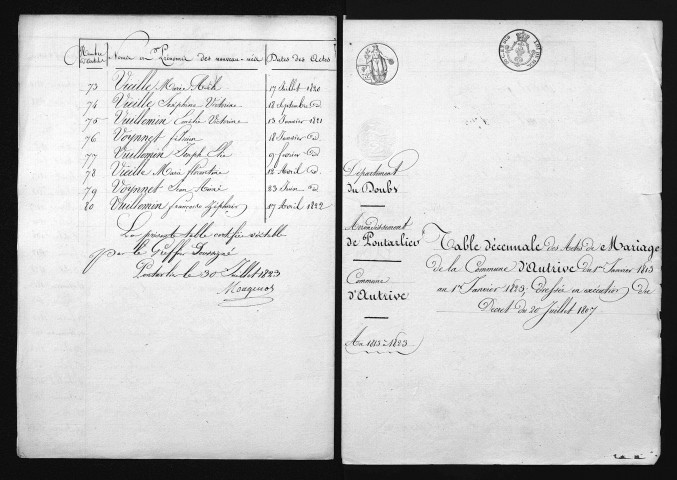 Nombre d'actes | Noms et Prénoms des nouveau-nés | Dates des Actes
73 Vieille Marie 17 Juillet 1820
74 Vieille Joséphine Victorine 18 Septembre id
75 Vuillemin Emélie Victorine 13 Janvier 1821
76 Voynnet 18 Janvier id
77 Vuillemin Joseph Elie 9 février id
78 Vieille Marie florentine 12 Avril id
79 Voynnet Jean Aimé 23 Juin id
80 Vuillemin françoise Zéphirine 17 Avril 1822
La présente table certifiée véritable
par le Greffier Soussigné
Pontarlier le 30 Juillet 1823
Mougenot
Département
du Doubs
Arrondissement
de Pontarlier
Commune
d'Autrive
An 1813 - 1823
Table décennale des Actes de Mariage
de la Commune d'Autrive du 1er Janvier 1813
au 1er Janvier 1823, dressée en exécution du
Décret du 20 Juillet 1807